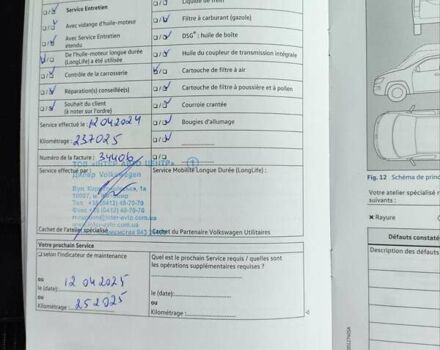 Service Entretien
Liquide de frein
Avec vidange d'huile-moteur
Filtre à carburant (gazole)
Avec Service Entretien
étendu
DSG®: huile de boîte
De l'huile-moteur longue durée
(LongLife) a été utilisée
Huile du coupleur de transmission intégrale
Contrôle de la carrosserie
Cartouche de filtre à air
Réparation(s) conseillée(s)
Cartouche de filtre à poussière et à pollen
Souhait du client
(à noter sur l'ordre)
Courroie crantée
Service effectué le: 12 04 2024
Bougies d'allumage
Kilométrage: 237025
Numéro de la facture: 34406
ТОВ «ІНТЕР АВТО ЦЕНТР» 1
Service effectué par:
Service Mobilité Longue Durée (LongLife):
Дилер Volkswagen
Cachet de l'atelier spécialisé
Cachet du Partenaire Volkswagen Utilitaires
Votre prochain Service
selon l'indicateur de maintenance
ou
le (date): 12 04 2025
ou
Kilométrage: 252025
Quel est le prochain Service requis / quelles sont
les opérations supplémentaires requises ?
le (date):
ou
Kilométrage:
Fig. 12 Schéma de princ
Votre atelier spécialisé
suivants :
✖ Rayure
Défauts constaté
Description des défauts